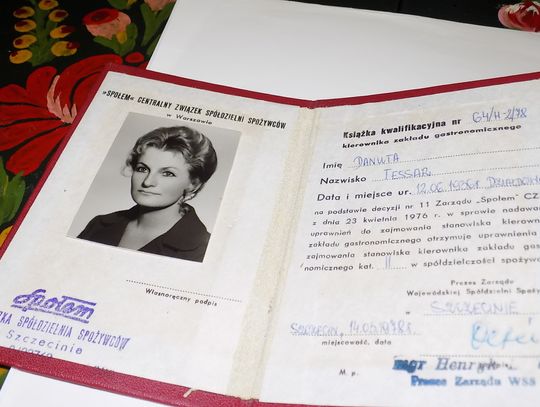 »SPOŁEM« CENTRALNY ZWIĄZEK SPÓŁDZIELNI SPOŻYWCÓW
w Warszawie
Własnoręczny podpis
Społem
SPÓŁDZIELNIA SPOŻYWCÓW
Szczecinie
Książka kwalifikacyjna nr G4/H-2/78
kierownika zakładu gastronomicznego
Imię DANUTA
Nazwisko TESSAR
Data i miejsce ur. 12.06.1926r.
na podstawie decyzji nr 11 Zarządu „Społem" CZ
z dnia 23 kwietnia 1976 r. w sprawie nadawa
uprawnień do zajmowania stanowiska kierowni
zakładu gastronomicznego otrzymuje uprawnienia
zajmowania stanowiska kierownika zakładu gas
nomicznego kat. II w spółdzielczości spożyw
Prezes Zarządu
Wojewódzkiej Spółdzielni Spoż
w SZCZECINIE
SZCZECIN, 14.05.1978r.
miejscowość, data
M. p.
mgr Henryk
Prezes Zarządu WSS